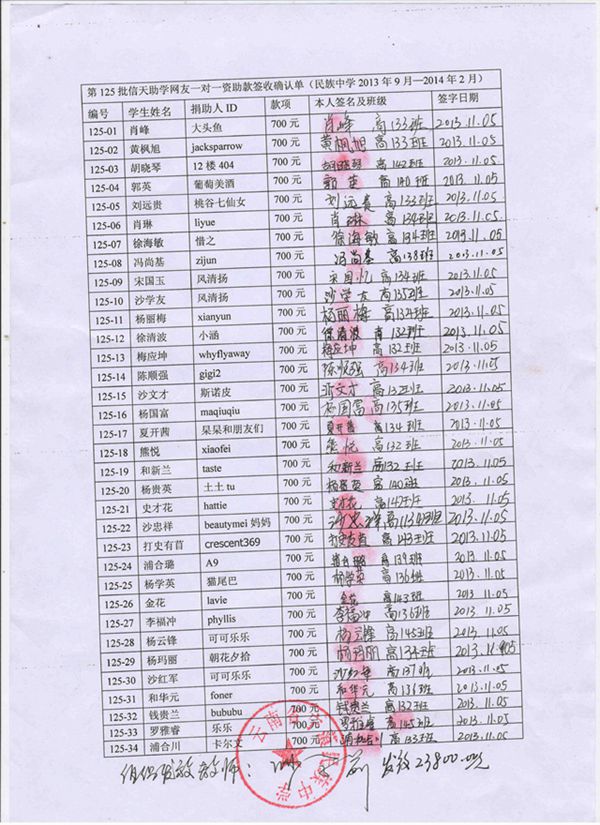 第 125 批信天助学网友一对一资助款签收确认单（民族中学 2013 年 9 月—2014 年 2 月）
编号 学生姓名 捐助人 ID 款项 本人签名及班级 签字日期
125-01 肖峰 大头鱼 700 元 肖峰 高133班 2013.11.05
125-02 黄枫旭 jacksparrow 700 元 黄枫旭 高133班 2013.11.05
125-03 胡晓琴 12 楼 404 700 元 胡晓琴 高142班 2013.11.05
125-04 郭英 葡萄美酒 700 元 郭英 高140班 2013.11.05
125-05 刘远贵 桃谷七仙女 700 元 刘远贵 高133班 2013.11.05
125-06 肖琳 liyue 700 元 肖琳 高134班 2013.11.05
125-07 徐海敏 惜之 700 元 徐海敏 高134班 2013.11.05
125-08 冯尚基 zijun 700 元 冯尚基 高138班 2013.11.05
125-09 宋国玉 风清扬 700 元 宋国 高134班 2013.11.05
125-10 沙学友 风清扬 700 元 沙学友 高135班 2013.11.05
125-11 杨丽梅 xianyun 700 元 杨丽梅 高134班 2013.11.05
125-12 徐清波 小涵 700 元 徐清波 高132班 2013.11.05
125-13 梅应坤 whyflyaway 700 元 梅应坤 高132班 2013.11.05
125-14 陈顺强 gigi2 700 元 陈顺强 高134班 2013.11.05
125-15 沙文才 斯诺皮 700 元 沙文才 高132班 2013.11.05
125-16 杨国富 maqiuqiu 700 元 杨国富 高135班 2013.11.05
125-17 夏开茜 呆呆和朋友们 700 元 夏开茜 高134班 2013.11.05
125-18 熊悦 xiaofei 700 元 熊悦 高132班 2013.11.05
125-19 和新兰 taste 700 元 和新兰 高132班 2013.11.05
125-20 杨贵英 土土 tu 700 元 杨贵英 高140班 2013.11.05
125-21 史才花 hattie 700 元 史才花 高142班 2013.11.05
125-22 沙忠祥 beautymei 妈妈 700 元 沙忠祥 高134班 2013.11.05
125-23 打史有首 crescent369 700 元 打史有首 高143班 2013.11.05
125-24 浦合璐 A9 700 元 高139班 2013.11.05
125-25 杨学英 猫尾巴 700 元 杨学英 高136班 2013.11.05
125-26 金花 lavie 700 元 金花 高143班 2013.11.05
125-27 李福冲 phyllis 700 元 李福冲 高136班 2013.11.05
125-28 杨云锋 可可乐乐 700 元 杨云锋 高145班 2013.11.05
125-29 杨玛丽 朝花夕拾 700 元 杨玛丽 高134班 2013.11.05
125-30 沙红军 可可乐乐 700 元 沙红军 高137班 2013.11.05
125-31 和华元 foner 700 元 和华元 高136班 2013.11.05
125-32 钱贵兰 bububu 700 元 钱贵兰 高132班 2013.11.05
125-33 罗雅睿 乐乐 700 元 罗雅睿 高145班 2013.11.05
125-34 浦合川 卡尔文 700 元 浦合川 高133班 2013.11.05
发放教师： 发放23800.00元